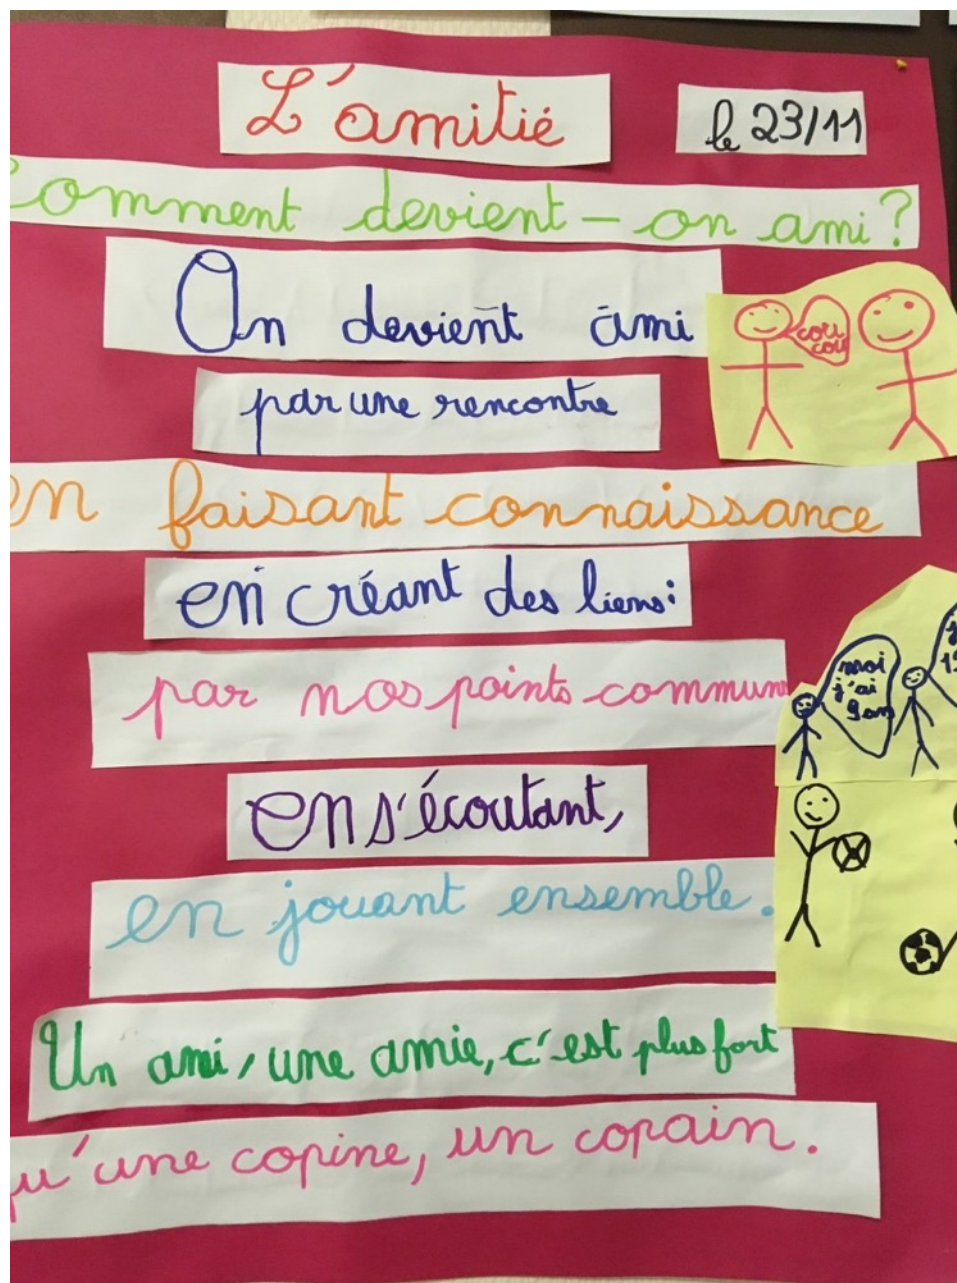 L'amitié
le 23/11
Comment devient-on ami?
On devient ami
par une rencontre
coucou
en faisant connaissance
en créant des liens:
par nos points communs
moi
j'ai
9 ans
en s'écoutant,
en jouant ensemble.
Un ami, une amie, c'est plus fort
qu'une copine, un copain.